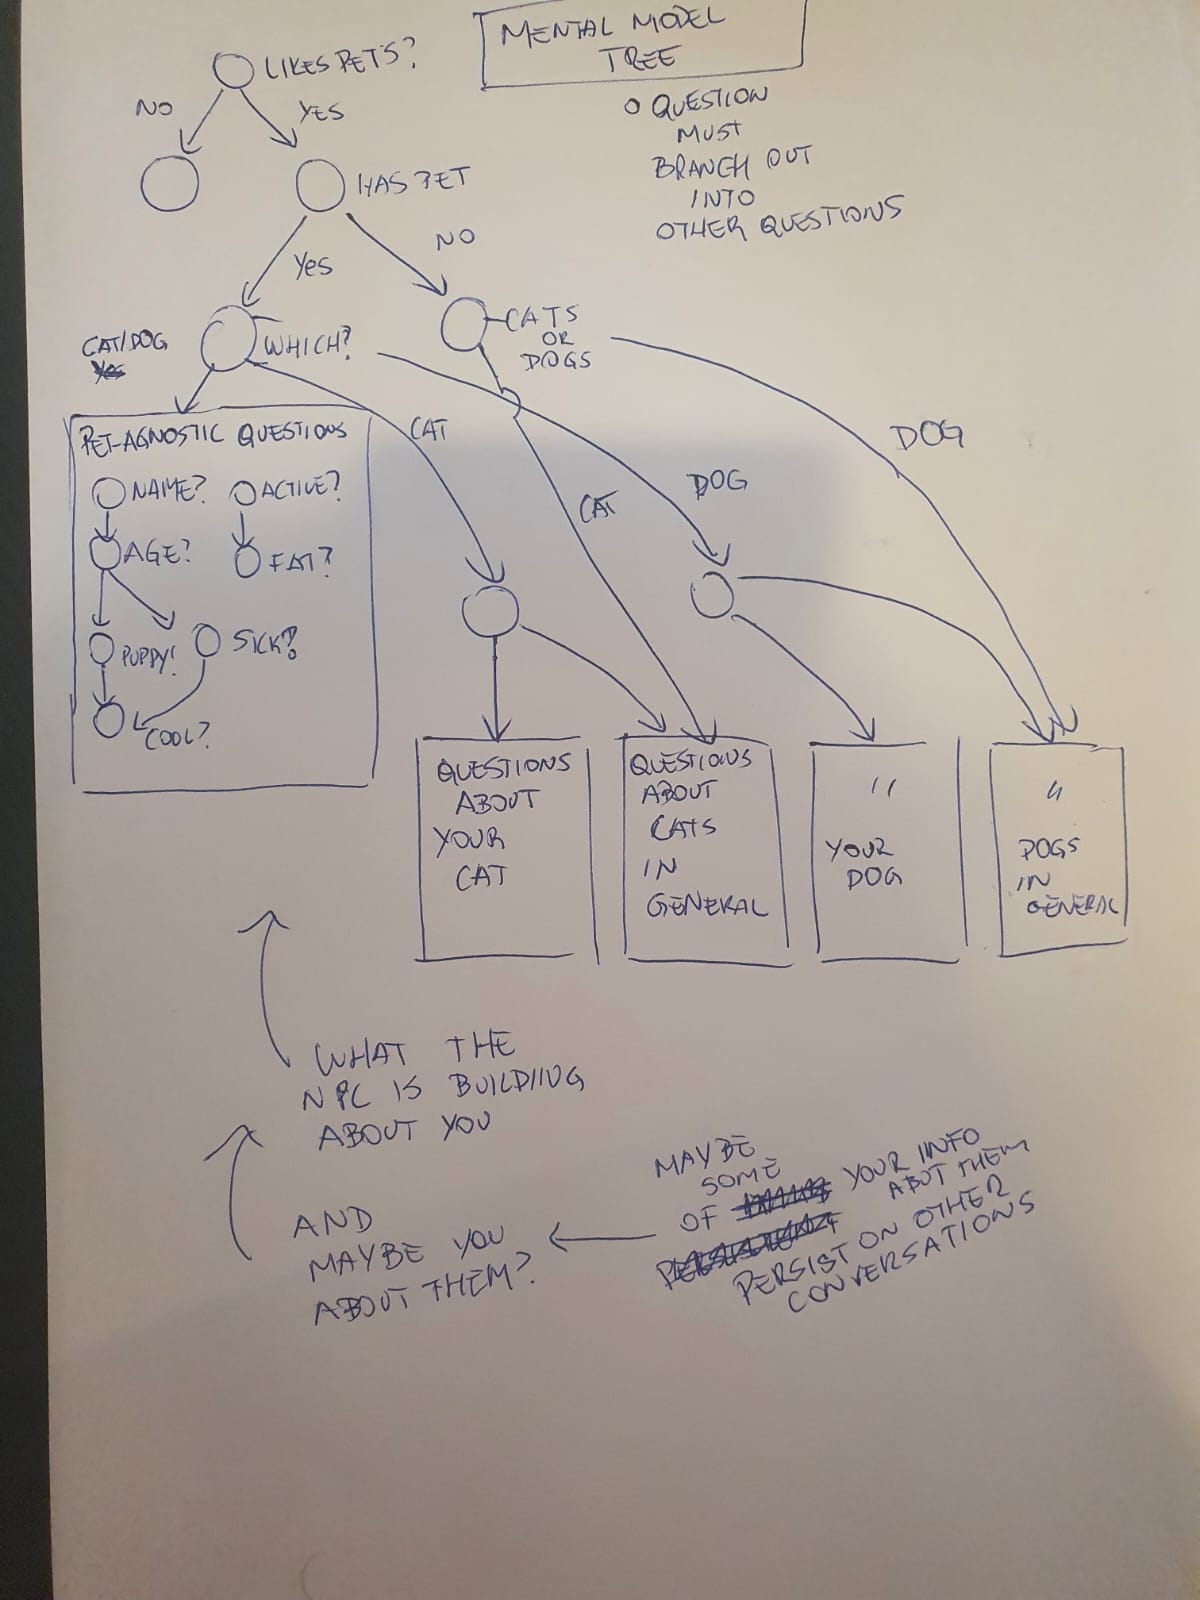 MENTAL MODEL
TREE
LIKES PETS?
NO
YES
O QUESTION
MUST
BRANCH OUT
INTO
OTHER QUESTIONS
HAS PET
NO
Yes
CAT/DOG
WHICH?
CATS
OR
DOGS
Yes
PET-AGNOSTIC QUESTIONS
NAME?
ACTIVE?
AGE?
FAT?
PUPPY!
SICK?
COOL?
CAT
CAT
DOG
DOG
QUESTIONS
ABOUT
YOUR
CAT
QUESTIONS
ABOUT
CATS
IN
GENERAL
"
YOUR
DOG
"
DOGS
IN
GENERAL
WHAT THE
NPC IS BUILDING
ABOUT YOU
AND
MAYBE YOU
ABOUT THEM?
MAYBE
SOME
OF YOUR INFO
ABUT THEM
PERSIST ON OTHER
CONVERSATIONS